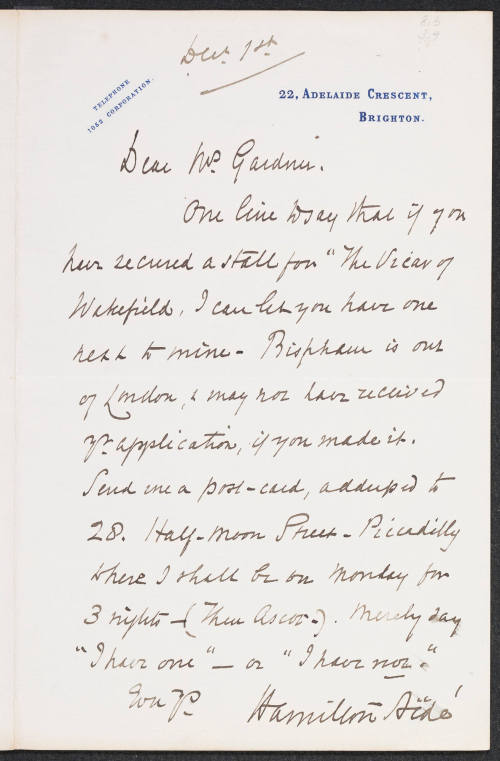 Decr 1st
TELEPHONE
1052 CORPORATION.
22, ADELAIDE CRESCENT,
BRIGHTON.
Dear Mrs. Gardner.
One line to say that if you
have secured a stall for "The Vicar of
Wakefield, I can let you have one
next to mine - Bispham is out
of London, & may not have received
yr. application, if you made it.
Send me a post-card, addressed to
28. Half-Moon Street - Piccadilly
where I shall be on Monday for
3 nights - (Then Ascot -). Merely say
"I have one" - or "I have not."
Hamilton Aïdé